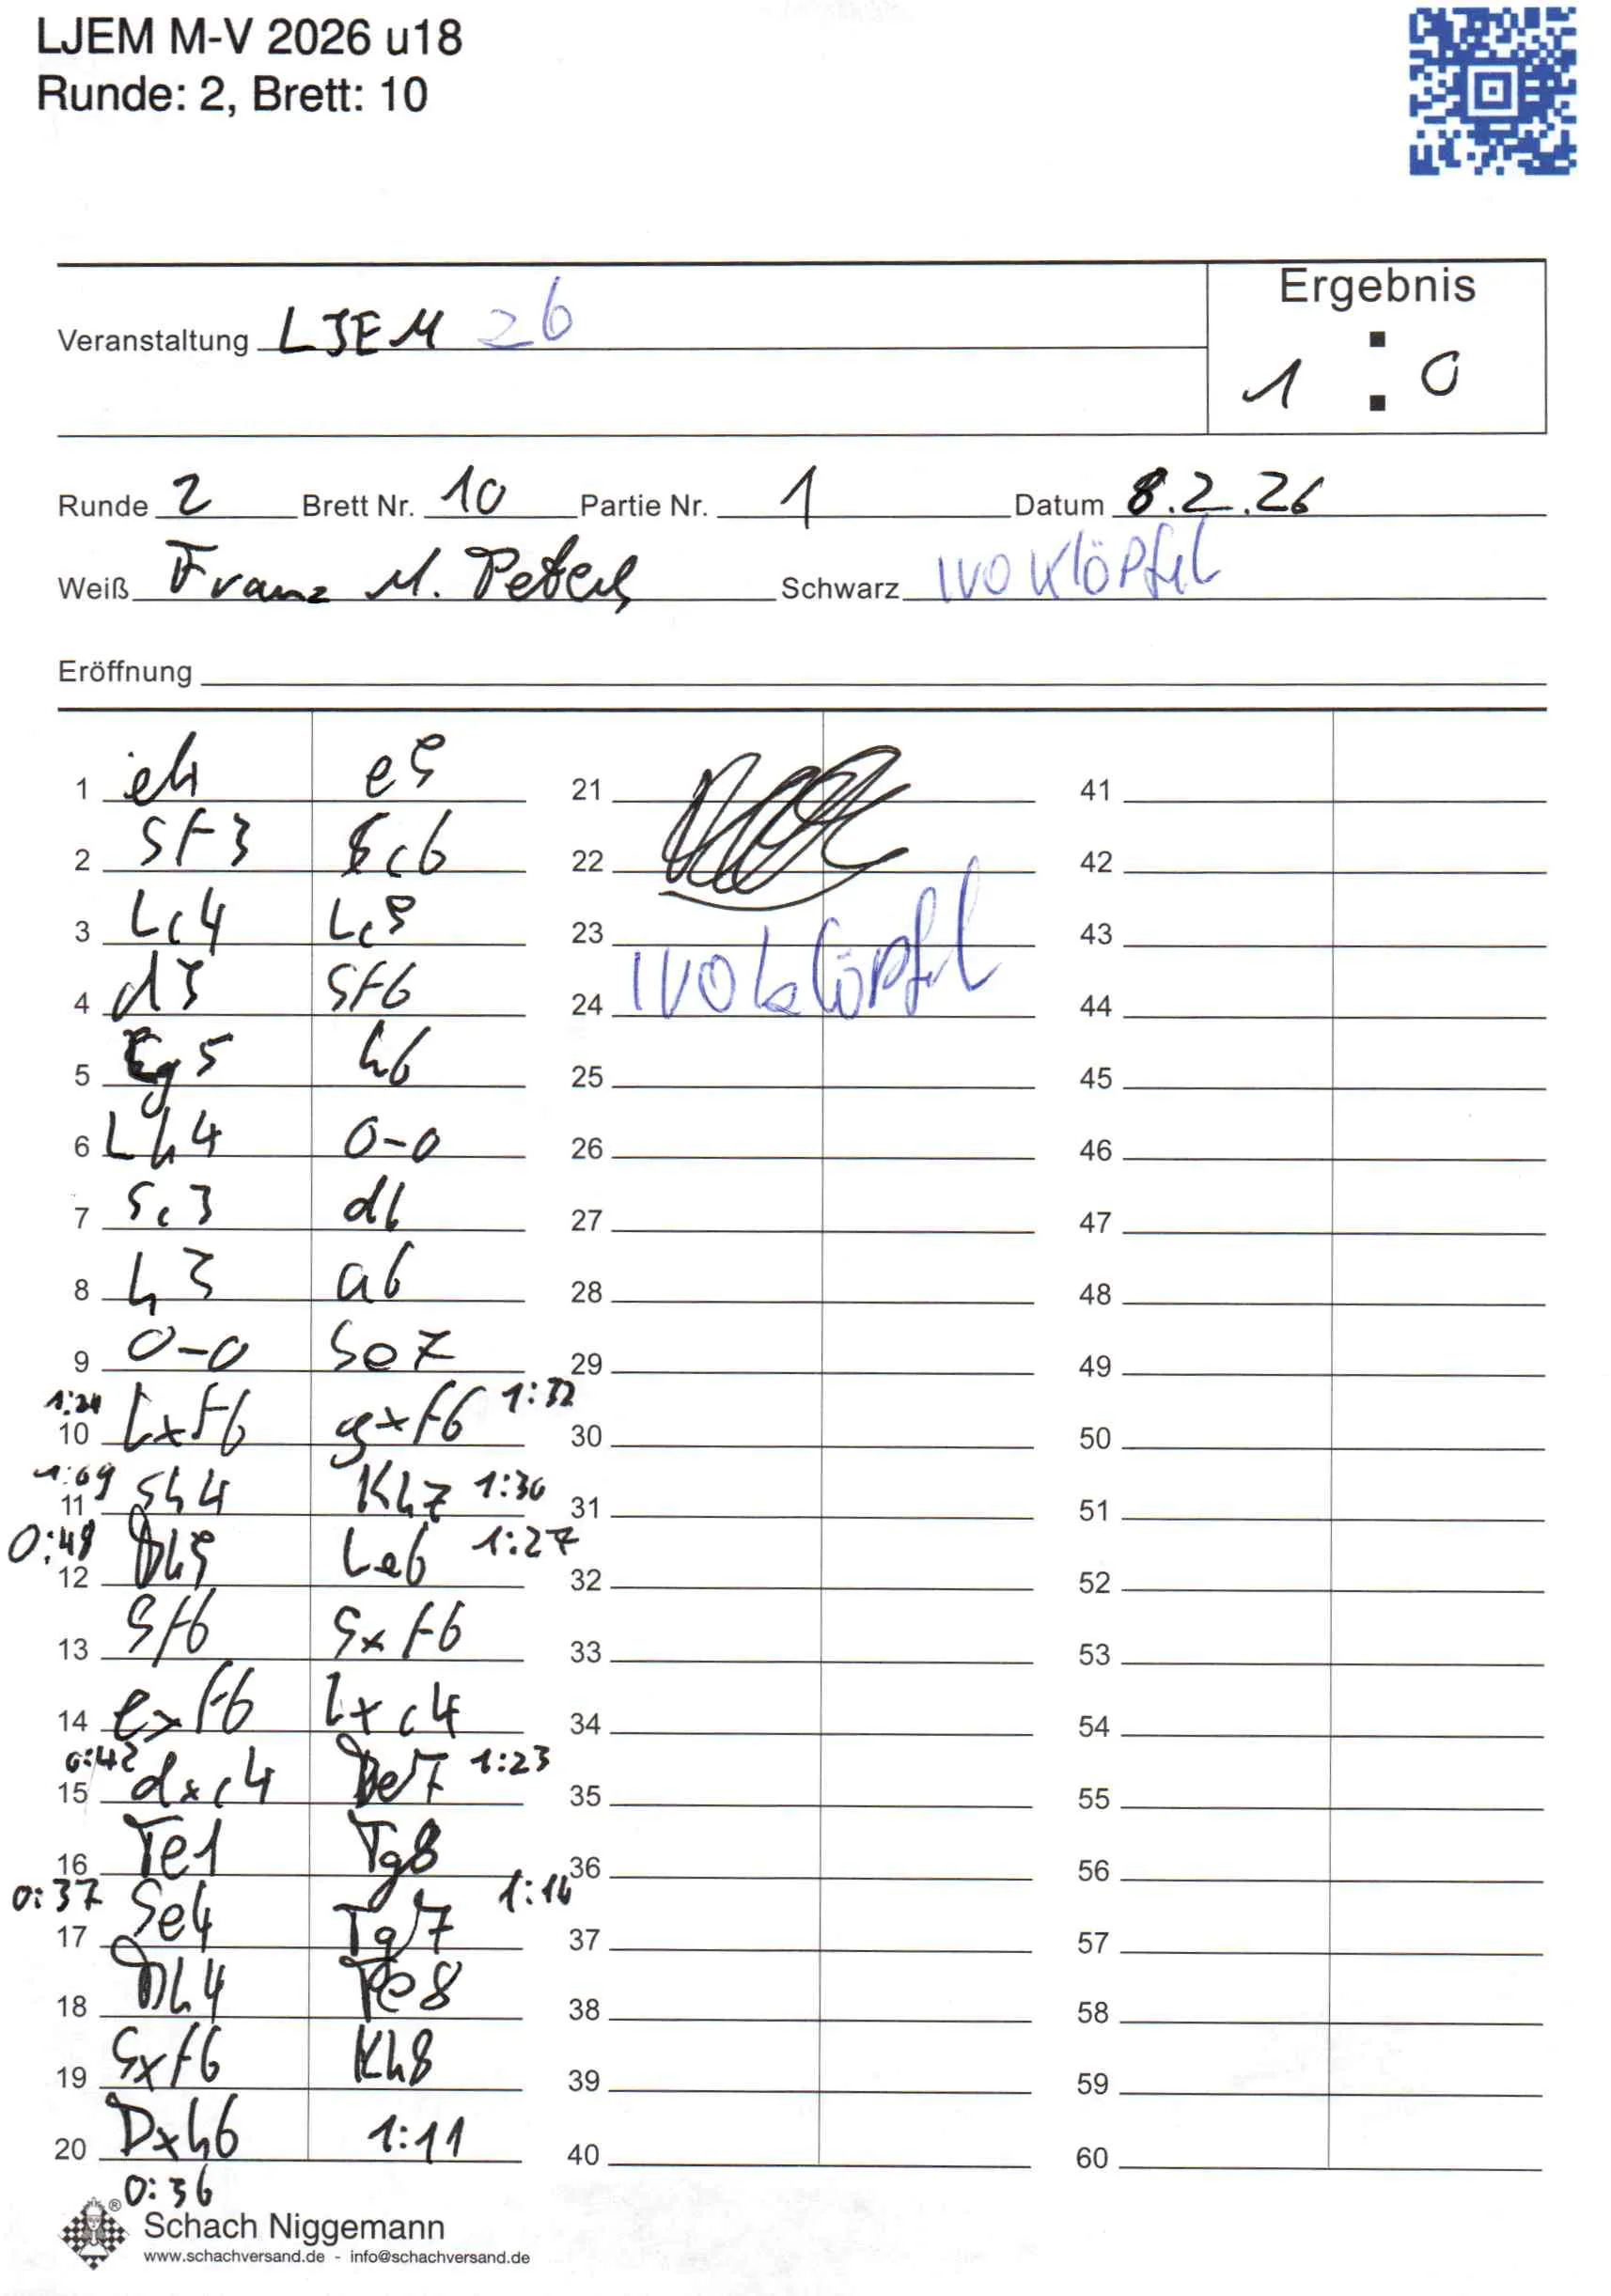 LJEM M-V 2026 u18
Runde: 2, Brett: 10
Ergebnis
Veranstaltung LJEM 26
1 : 0
Runde 2 Brett Nr. 10 Partie Nr. 1 Datum 8.2.26
Weiß Franz M. Peters Schwarz Ivo Klöpfel
Eröffnung
1 e4 e5
2 Sf3 Sc6
3 Lc4 Lc5
4 d3 Sf6
5 Lg5 h6
6 Lh4 0-0
7 Sc3 d6
8 h3 a6
9 0-0 Se7
1:24 10 Lxf6 gxf6 1:32
1:09 11 Sh4 Kh7 1:30
0:48 12 Dh5 Le6 1:27
13 Sf6 Sxf6
14 exf6 Lxc4
0:42 15 dxc4 De7 1:23
16 Te1 Tg8
0:37 17 Se4 Tg7 1:14
18 Dh4 Te8
19 Sxf6 Kh8
20 Dxh6 1:11
0:36
21
22
23
24 Ivo Klöpfel
25
26
27
28
29
30
31
32
33
34
35
36
37
38
39
40
41
42
43
44
45
46
47
48
49
50
51
52
53
54
55
56
57
58
59
60
®
Schach Niggemann
www.schachversand.de - info@schachversand.de